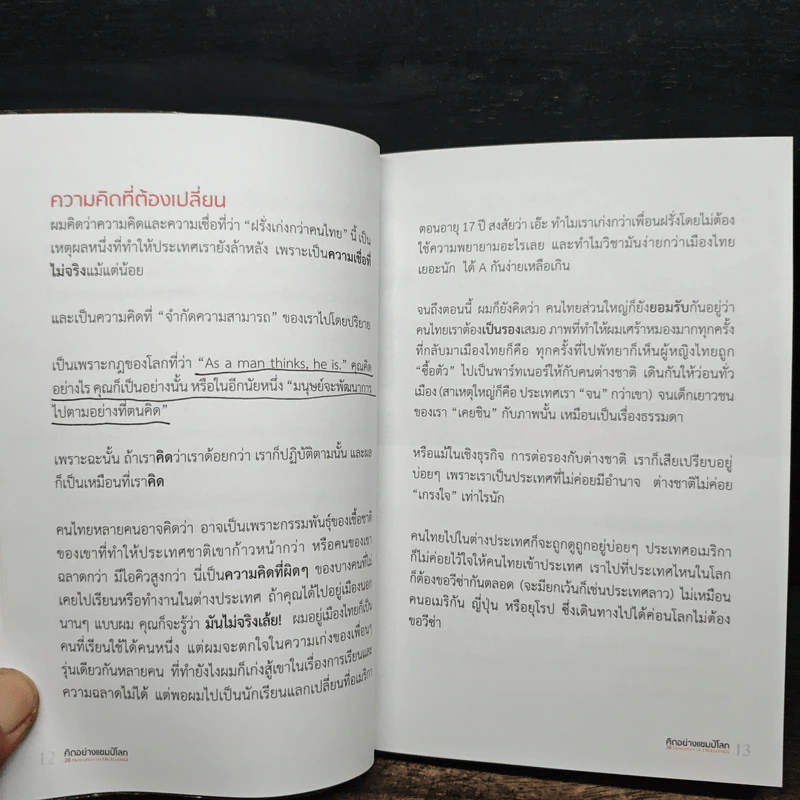 ความคิดที่ต้องเปลี่ยน
ผมคิดว่าความคิดและความเชื่อที่ว่า “ฝรั่งเก่งกว่าคนไทย” นี้ เป็น
เหตุผลหนึ่งที่ทำให้ประเทศเรายังล้าหลัง เพราะเป็นความเชื่อที่
ไม่จริงแม้แต่น้อย
และเป็นความคิดที่ “จำกัดความสามารถ” ของเราไปโดยปริยาย
เป็นเพราะกฎของโลกที่ว่า “As a man thinks, he is.” คุณคิด
อย่างไร คุณก็เป็นอย่างนั้น หรือในอีกนัยหนึ่ง “มนุษย์จะพัฒนาการ
ไปตามอย่างที่ตนคิด”
เพราะฉะนั้น ถ้าเราคิดว่าเราด้อยกว่า เราก็ปฏิบัติตามนั้น และผล
ก็เป็นเหมือนที่เราคิด
คนไทยหลายคนอาจคิดว่า อาจเป็นเพราะกรรมพันธุ์ของเชื้อชาติ
ของเขาที่ทำให้ประเทศชาติเขาก้าวหน้ากว่า หรือคนของเขา
ฉลาดกว่า มีไอคิวสูงกว่า นี่เป็นความคิดที่ผิดๆ ของบางคนที่ไม่
เคยไปเรียนหรือทำงานในต่างประเทศ ถ้าคุณได้ไปอยู่เมืองนอก
นานๆ แบบผม คุณก็จะรู้ว่า มันไม่จริงเล้ย! ผมอยู่เมืองไทยก็เป็น
คนที่เรียนใช้ได้คนหนึ่ง แต่ผมจะตกใจในความเก่งของเพื่อนๆ
รุ่นเดียวกันหลายคน ที่ทำยังไงผมก็เก่งสู้เขาในเรื่องการเรียนและ
ความฉลาดไม่ได้ แต่พอผมไปเป็นนักเรียนแลกเปลี่ยนที่อเมริกา
12 คิดอย่างแชมป์โลก
36 PRINCIPLES OF EXCELLENCE
ตอนอายุ 17 ปี สงสัยว่า เอ๊ะ ทำไมเราเก่งกว่าเพื่อนฝรั่งโดยไม่ต้อง
ใช้ความพยายามอะไรเลย และทำไมวิชามันง่ายกว่าเมืองไทย
เยอะนัก ได้ A กันง่ายเหลือเกิน
จนถึงตอนนี้ ผมก็ยังคิดว่า คนไทยส่วนใหญ่ก็ยังยอมรับกันอยู่ว่า
คนไทยเราต้องเป็นรองเสมอ ภาพที่ทำให้ผมเศร้าหมองมากทุกครั้ง
ที่กลับมาเมืองไทยก็คือ ทุกครั้งที่ไปพัทยาก็เห็นผู้หญิงไทยถูก
“ซื้อตัว” ไปเป็นพาร์ทเนอร์ให้กับคนต่างชาติ เดินกันให้ว่อนทั่ว
เมือง (สาเหตุใหญ่ก็คือ ประเทศเรา “จน” กว่าเขา) จนเด็กเยาวชน
ของเรา “เคยชิน” กับภาพนั้น เหมือนเป็นเรื่องธรรมดา
หรือแม้ในเชิงธุรกิจ การต่อรองกับต่างชาติ เราก็เสียเปรียบอยู่
บ่อยๆ เพราะเราเป็นประเทศที่ไม่ค่อยมีอำนาจ ต่างชาติไม่ค่อย
“เกรงใจ” เท่าไรนัก
คนไทยไปในต่างประเทศก็จะถูกดูถูกอยู่บ่อยๆ ประเทศอเมริกา
ก็ไม่ค่อยไว้ใจให้คนไทยเข้าประเทศ เราไปที่ประเทศไหนในโลก
ก็ต้องขอวีซ่ากันตลอด (จะมียกเว้นก็เช่นประเทศลาว) ไม่เหมือน
คนอเมริกัน ญี่ปุ่น หรือยุโรป ซึ่งเดินทางไปได้ค่อนโลกไม่ต้อง
ขอวีซ่า
คิดอย่างแชมป์โลก 13
36 PRINCIPLES OF EXCELLENCE